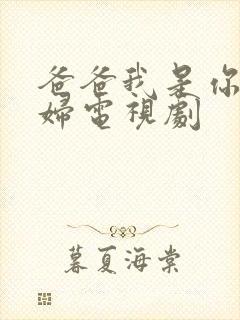 爸爸我是你
婦電視劇
暮夏海棠